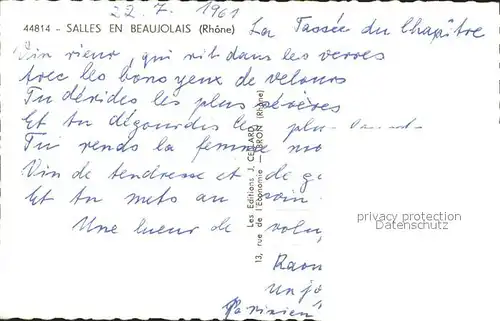 22.7.1961
44814 - SALLES EN BEAUJOLAIS (Rhône)
La Tassée du Chapître
Vin rieur, qui rit dans les verres
Avec les bons yeux de velours
Tu dérides les plus sévères
Et tu dégourdes les plus
Tu rends la femme
Vin de tendresse et de
Et tu mets au
Une lueur de
un
Parisien
Les Editions J. CELLARD
13, rue de l'Economie - BRON (Rhône)
privacy protection
Datenschutz